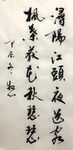 潯陽江頭夜送客
楓葉荻花秋瑟瑟